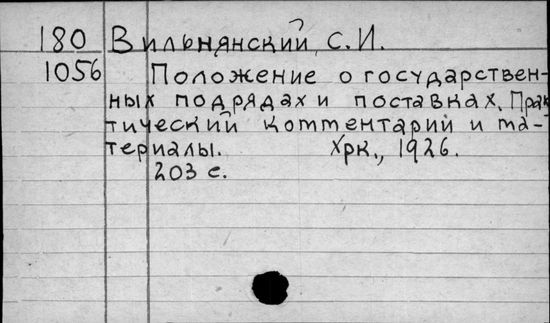 180 Вильнянский, С.И.
1056 Положение о государствен-
ных подрядах и поставках. Прак
тический комментарий и ма-
териалы. Хрк., 1926.
203 с.